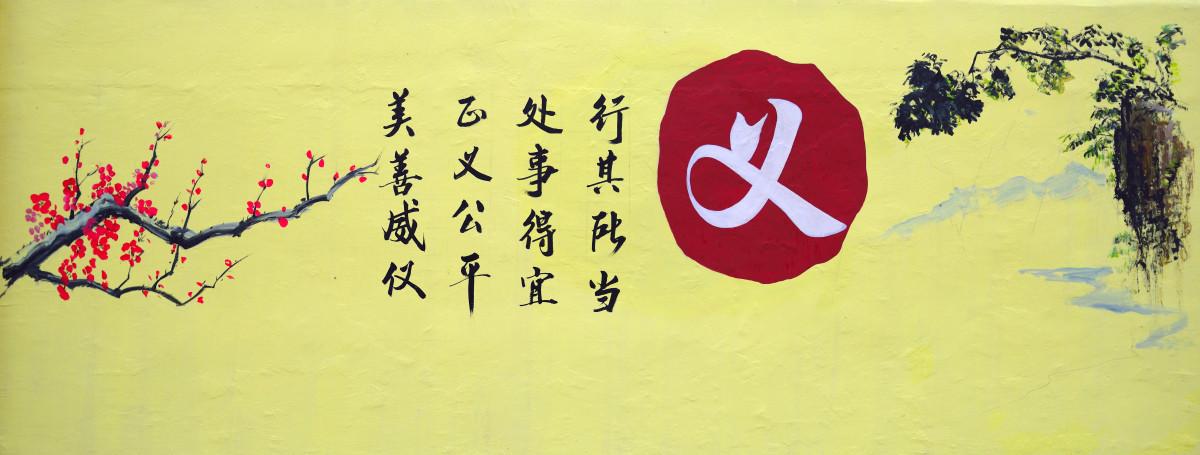 义
行其所当
处事得宜
正义公平
美善威仪